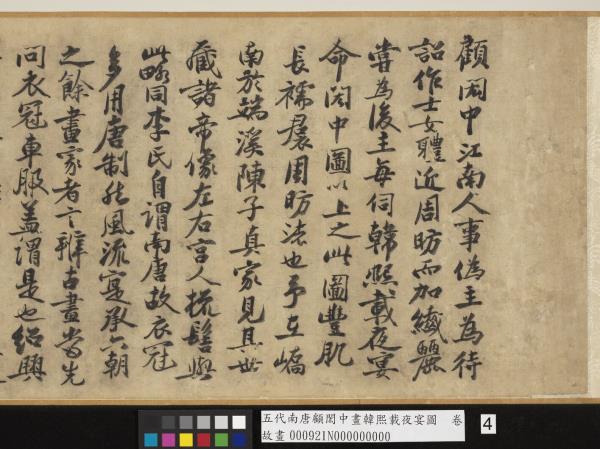 顧閎中江南人事偽主為待
詔作士女體近周昉而加纎麗
嘗為後主每伺韓熈載夜宴
命閎中圖以上之此圖豐肌
長襦裠周昉法也予在嶠
南於端溪陳子真家見其世
藏諸帝像左右宮人梳髻與
此略同李氏自謂南唐故衣冠
多用唐制然風流寔承六朝
之餘畫家者言辨古畫當先
問衣冠車服蓋謂是也紹興
五代南唐顧閎中畫韓熙載夜宴圖 卷
故畫 00092IN000000000
4